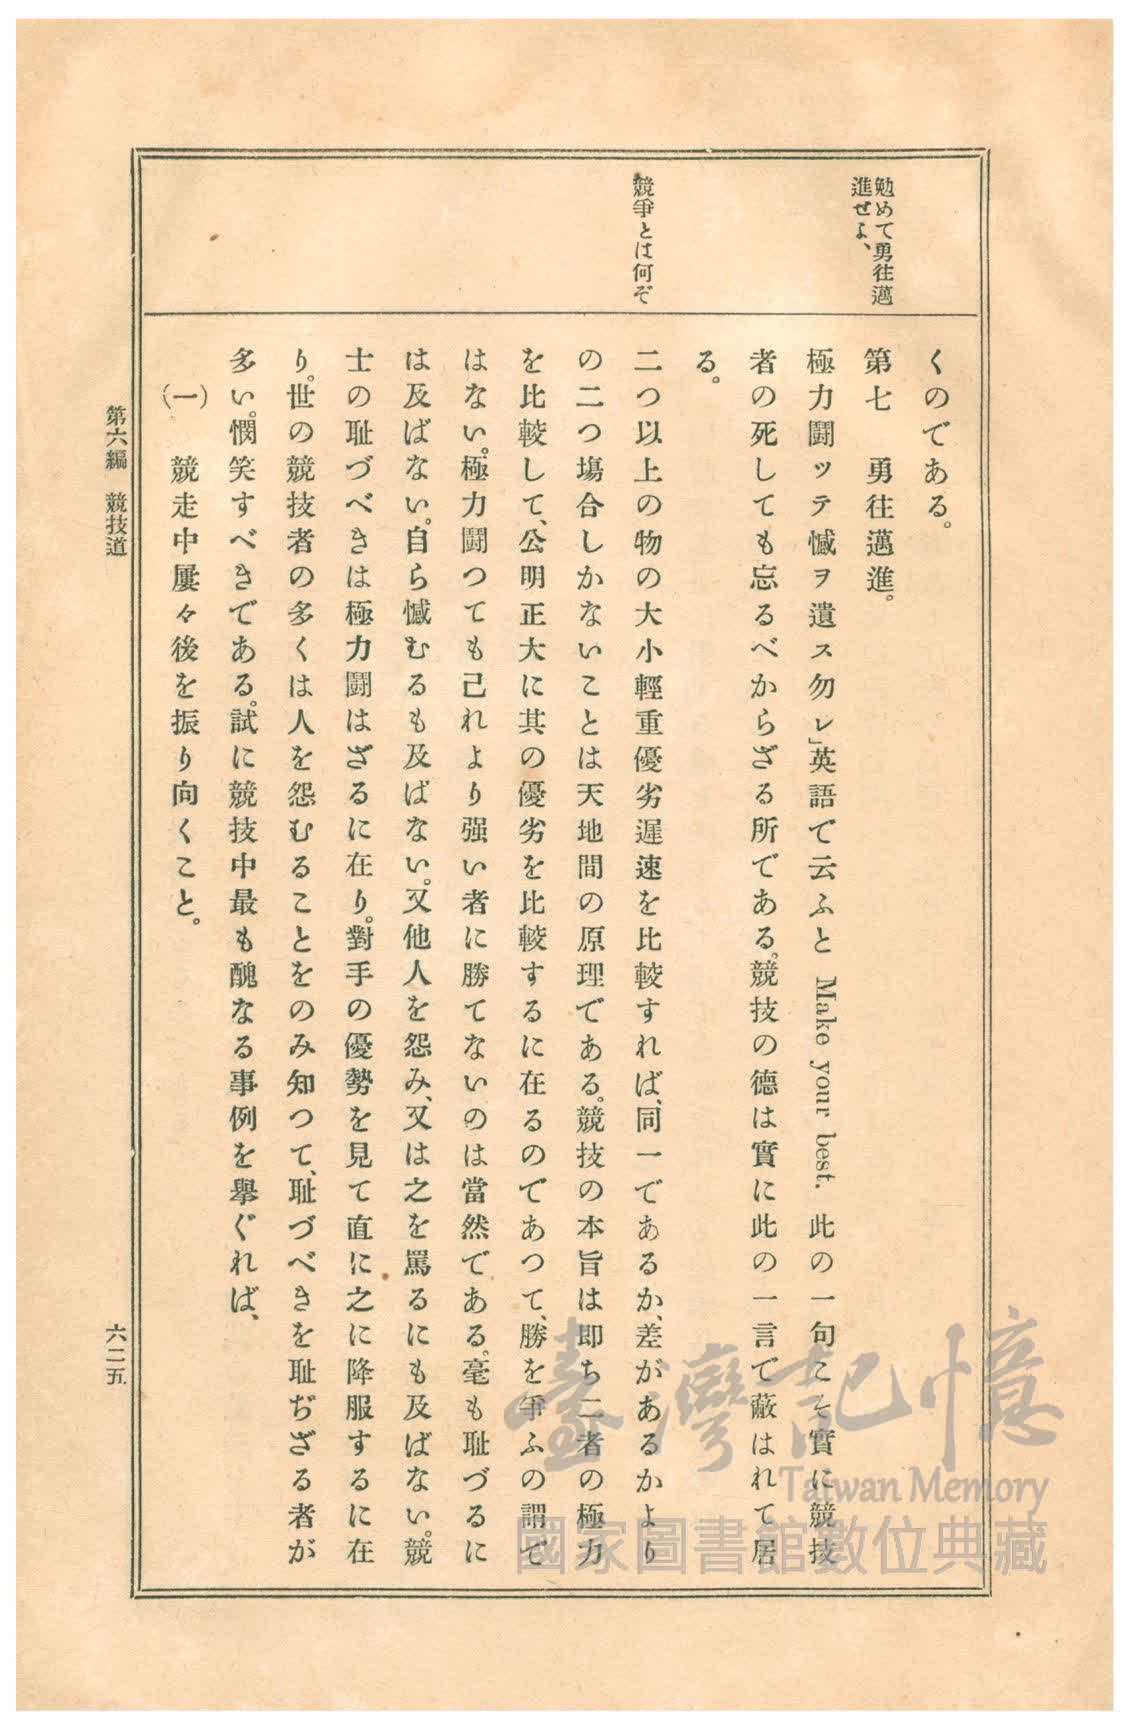 勉めて勇往邁
進せよ、
競爭とは何ぞ
くのである。
第七　勇往邁進。
極力鬪ッテ憾ヲ遺ス勿レ」英語で云ふと Make your best. 此の一句こそ實に競技
者の死しても忘るべからざる所である。競技の德は實に此の一言で蔽はれて居
る。
二つ以上の物の大小輕重優劣遲速を比較すれば、同一であるか、差があるかより
の二つ塲合しかないことは天地間の原理である。競技の本旨は即ち二者の極力
を比較して、公明正大に其の優劣を比較するに在るのであつて、勝を爭ふの謂で
はない。極力鬪つても己れより强い者に勝てないのは當然である。毫も耻づるに
は及ばない。自ら憾むるも及ばない。又他人を怨み、又は之を罵るにも及ばない。競
士の耻づべきは極力鬪はざるに在り。對手の優勢を見て直に之に降服するに在
り。世の競技者の多くは人を怨むることをのみ知つて、耻づべきを耻ぢざる者が
多い。憫笑すべきである。試に競技中最も醜なる事例を擧ぐれば、
(一)　競走中屢々後を振り向くこと。
第六編　競技道
六二五
臺灣記憶
Taiwan Memory
國家圖書館數位典藏